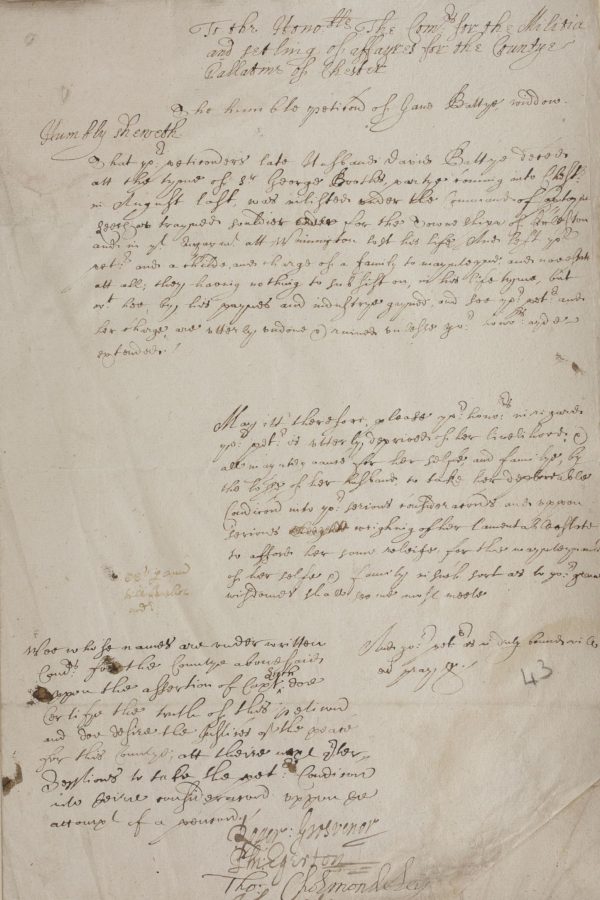 To the Honoble The Comrs for the Militia
and setling of affayres for the Countye
Pallatine of Chester
The humble peticon of Jane Battye widdow
Humbly sheweth
That yor peticoners late Husband David Battye
att the tyme of Sr George Booths partye coming into
in August last, was inlisted under the Command of
trayned souldier for the Towneshipp of
and in yt att Winnington lost his life And left yor
petr and a childe and charge of a family to mayneteyne and noe estate
att all; they haveing nothing to subsist on, in his life tyme, but
wt hee, by his paynes and industrye gayned, and soe yor petr and
her charge, are utterly undone & ruined unlesse yor honors ayde
extended!
May itt therefore, please yor honors in regard
yor petr is utterly deprived of her livelihood, &
all mayntenance for her selfe and familye, by
the losse of her husband to take her deplorable
Condicon into yor serious consideracons and uppon
serious weighing of her lamentable estate
to afford her some releife for the
of her selfe & family in such sort as to yor
wisdomes shall seeme most meete
And yor petr as in duty bound will
ever pray &c
43
Wee whose names are under written
Comrs for the Countye abovesaid
uppon the assertion of Capt doe
Certifye the truth of this peticon
and doe desire the Justices of the peace
for this Countye, att theire next
Sessions to take the petrs Condicon
into theire consideracon uppon
Roger: Grosvenor
Phil: Egerton
Tho: Cholmondeley